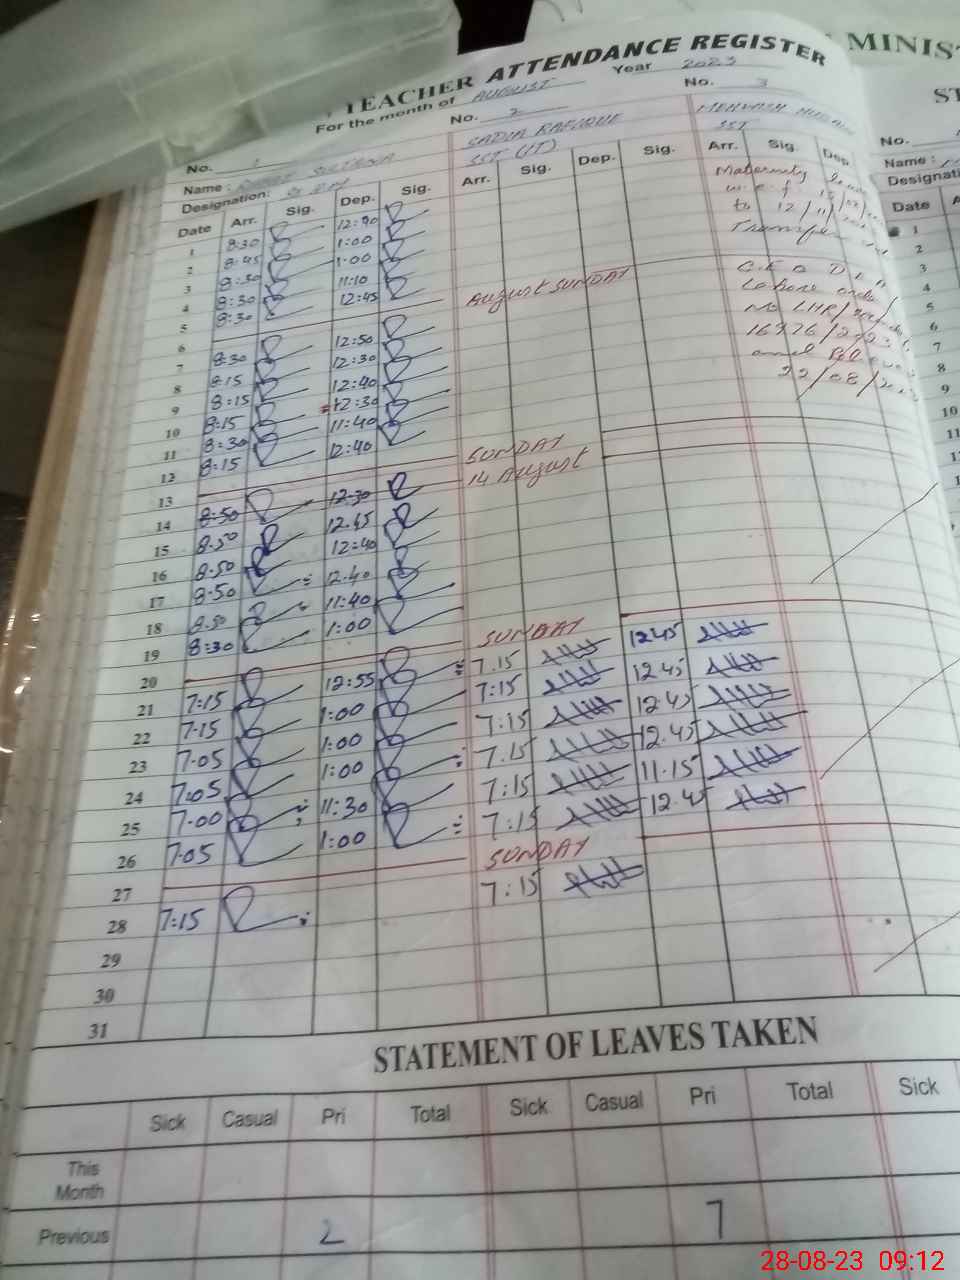 TEACHER ATTENDANCE REGISTER
MINIS
For the month of AUGUST Year 2023
No. 1 No. 2 No. 3
Name : SULTANA SADIA RAFIQUE MEHVASH
Designation: SST (IT) SST
Date Arr. Sig. Dep. Sig. Arr. Sig. Dep. Sig. Arr. Sig. Dep.
No.
Name :
Designati
Date A
Maternity leave
w.e.f
to 12/11/
Transfer
C.E.O D.E.A
Lahore order
No LHR/
16976/2023
22/08/
1 8:30 12:40
2 8:45 1:00
3 8:30 1:00
4 8:30 11:10
5 8:30 12:45
6 August SUNDAY
7 8:30 12:50
8 8:15 12:30
9 8:15 12:40
10 8:15 12:30
11 8:30 11:40
12 8:15 12:40
13 SUNDAY
14 8:50 12:30 14 August
15 8.50 12.45
16 8.50 12:40
17 8.50 12.40
18 8.50 11:40
19 8:30 1:00
20 SUNDAY
21 7:15 12:55 7.15 12 45
22 7.15 1:00 7:15 12.45
23 7.05 1:00 7:15 12.45
24 7.05 1:00 7.15 12.45
25 7.00 11:30 7:15 11.15
26 7.05 1:00 7:15 12.45
27 SUNDAY
28 7:15 7:15
29
30
31
1
2
3
4
5
6
7
8
9
10
11
STATEMENT OF LEAVES TAKEN
Sick Casual Pri Total Sick Casual Pri Total Sick
This
Month
Previous 2 7
28-08-23 09:12